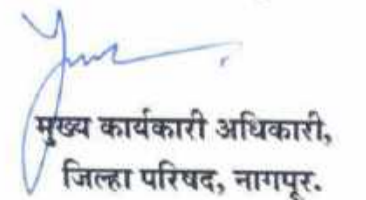 मुख्य कार्यकारी अधिकारी,
जिल्हा परिषद, नागपूर.